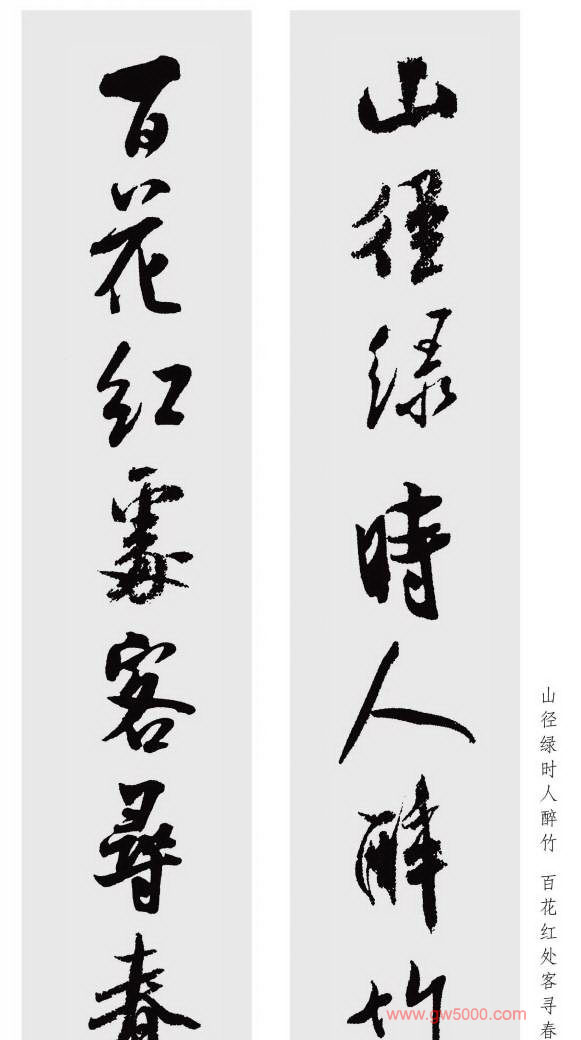 山徑绿時人醉竹
百花红處客尋春
山径绿时人醉竹 百花红处客寻春
www.gw5000.com